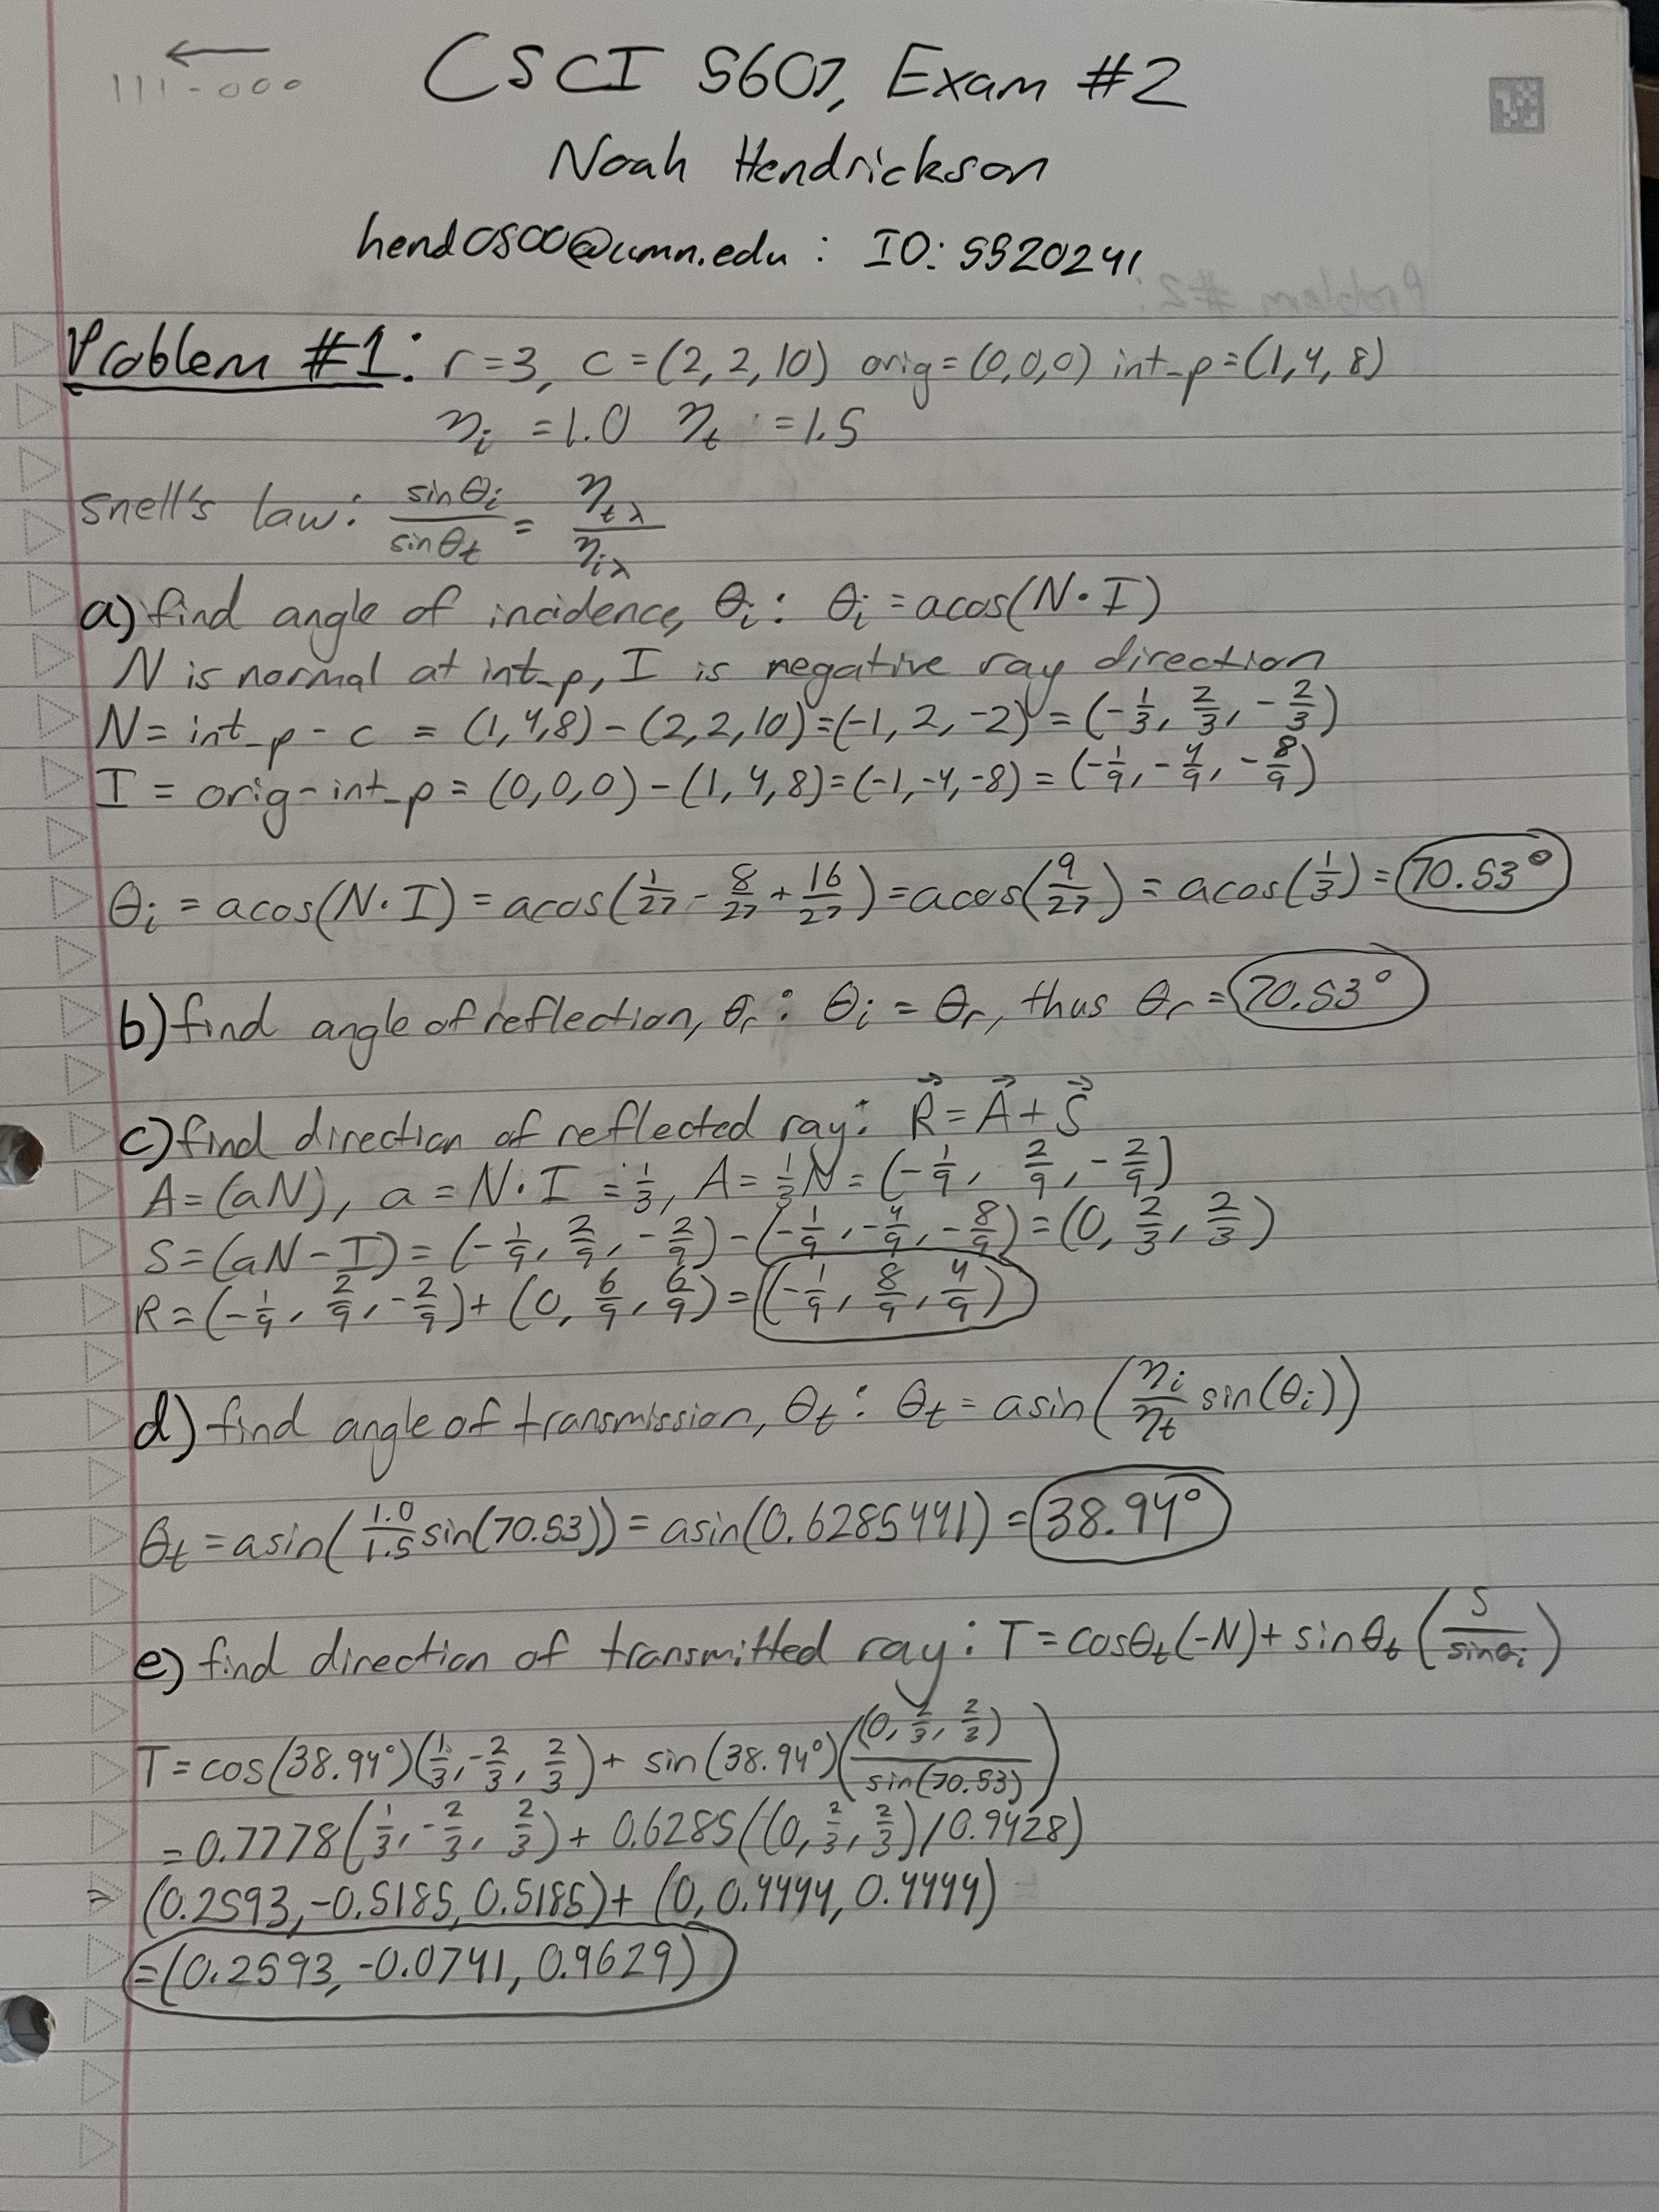 111-000
CSCI 5607, Exam #2
Noah Hendrickson
hend0800@umn.edu : ID: 5520241
Problem #2:
Problem #1: r=3, c=(2,2,10) orig=(0,0,0) int_p=(1,4,8)
η_i =1.0 η_t =1.5
snell's law: sinθ_i/sinθ_t = η_tλ/η_iλ
a) find angle of incidence, θ_i: θ_i = acos(N•I)
N is normal at int_p, I is negative ray direction
N= int_p - c = (1,4,8)-(2,2,10)=(-1,2,-2) = (-1/3, 2/3, -2/3)
I = orig-int_p = (0,0,0)-(1,4,8)=(-1,-4,-8) = (-1/9, -4/9, -8/9)
θ_i = acos(N•I) = acos(1/27 - 8/27 + 16/27)=acos(9/27) = acos(1/3) = 70.53°
b) find angle of reflection, θ_r: θ_i = θ_r, thus θ_r = 70.53°
c) find direction of reflected ray: R⃗ = A⃗ + S⃗
A=(aN), a=N•I = 1/3, A= 1/3N = (-1/9, 2/9, -2/9)
S=(aN-I)=(-1/9, 2/9, -2/9)-(-1/9, -4/9, -8/9)=(0, 2/3, 2/3)
R=(-1/9, 2/9, -2/9)+(0, 6/9, 6/9)=(-1/9, 8/9, 4/9)
d) find angle of transmission, θ_t: θ_t = asin(η_i/η_t sin(θ_i))
θ_t = asin(1.0/1.5 sin(70.53)) = asin(0.6285441) = 38.94°
e) find direction of transmitted ray: T=cosθ_t(-N)+sinθ_t(S/sinθ_i)
T=cos(38.94°)(1/3, -2/3, 2/3)+ sin(38.94°)((0, 2/3, 2/3)/sin(70.53))
=0.7778(1/3, -2/3, 2/3)+ 0.6285((0, 2/3, 2/3)/0.9428)
=(0.2593,-0.5185,0.5185)+(0,0.4444,0.4444)
=(0.2593,-0.0741,0.9629)